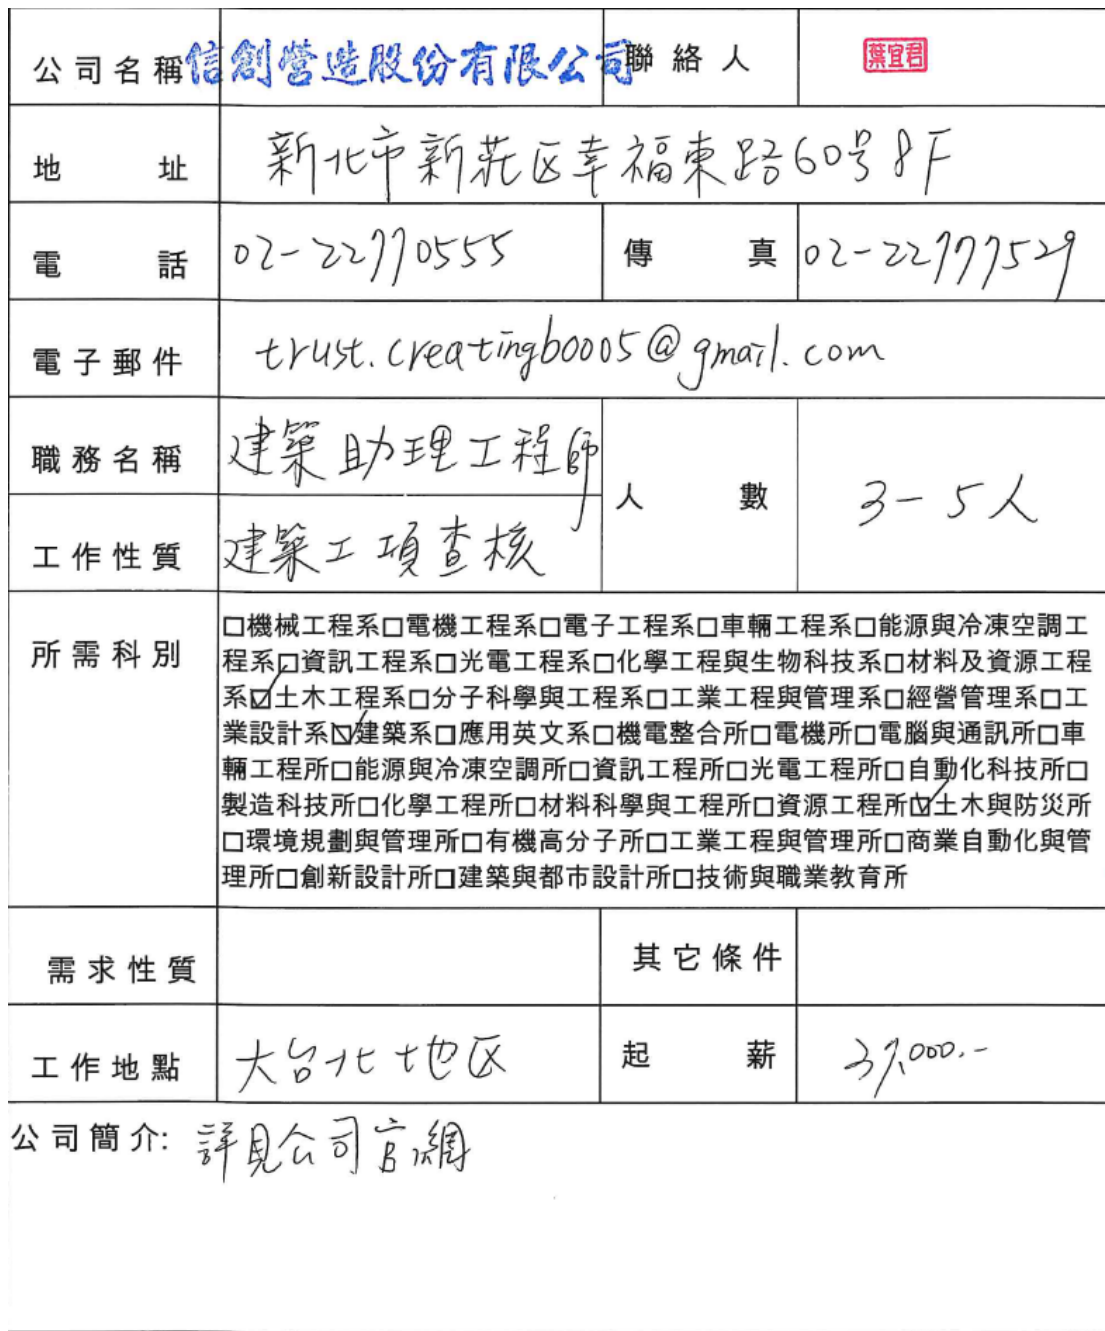 公司名稱 信創營造股份有限公司 聯絡人 葉宜君
地址 新北市新莊区幸福東路60号8F
電話 02-22770555 傳真 02-22777529
電子郵件 trust.creatingb0005@gmail.com
職務名稱 建築助理工程師
人數 3-5人
工作性質 建築工項查核
所需科別
□機械工程系□電機工程系□電子工程系□車輛工程系□能源與冷凍空調工
程系□資訊工程系□光電工程系□化學工程與生物科技系□材料及資源工程
系☑土木工程系□分子科學與工程系□工業工程與管理系□經營管理系□工
業設計系☑建築系□應用英文系□機電整合所□電機所□電腦與通訊所□車
輛工程所□能源與冷凍空調所□資訊工程所□光電工程所□自動化科技所□
製造科技所□化學工程所□材料科學與工程所□資源工程所☑土木與防災所
□環境規劃與管理所□有機高分子所□工業工程與管理所□商業自動化與管
理所□創新設計所□建築與都市設計所□技術與職業教育所
需求性質 其它條件
工作地點 大台北地区 起薪 37,000.-
公司簡介: 詳見公司官網